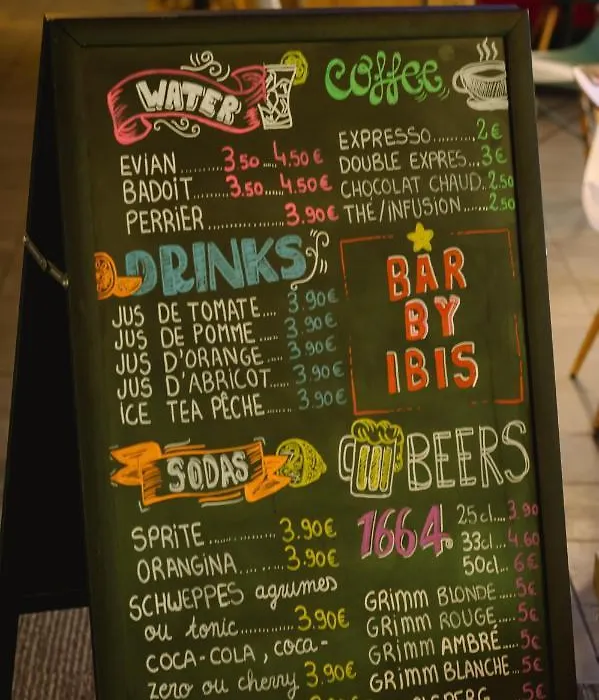 WATER
EVIAN.........3.50....4.50€
BADOIT........3.50....4.50€
PERRIER..............3.90€
coffee
EXPRESSO..........2€
DOUBLE EXPRES...3€
CHOCOLAT CHAUD..2.50
THE/INFUSION......2.50
DRINKS
JUS DE TOMATE.... 3.90€
JUS DE POMME..... 3.90€
JUS D'ORANGE.... 3.90€
JUS D'ABRICOT.... 3.90€
ICE TEA PÊCHE...... 3.90€
BAR
BY
IBIS
SODAS
SPRITE..............3.90€
ORANGINA.........3.90€
SCHWEPPES agrumes
ou tonic..........3.90€
COCA-COLA, coca-
zero ou cherry 3.90€
BEERS
1664 25cl....3.90
33cl...4.60
50cl... 6€
GRIMM BLONDE.....5€
GRIMM ROUGE.....5€
GRIMM AMBRÉ....5€
GRIMM BLANCHE...5€
5€